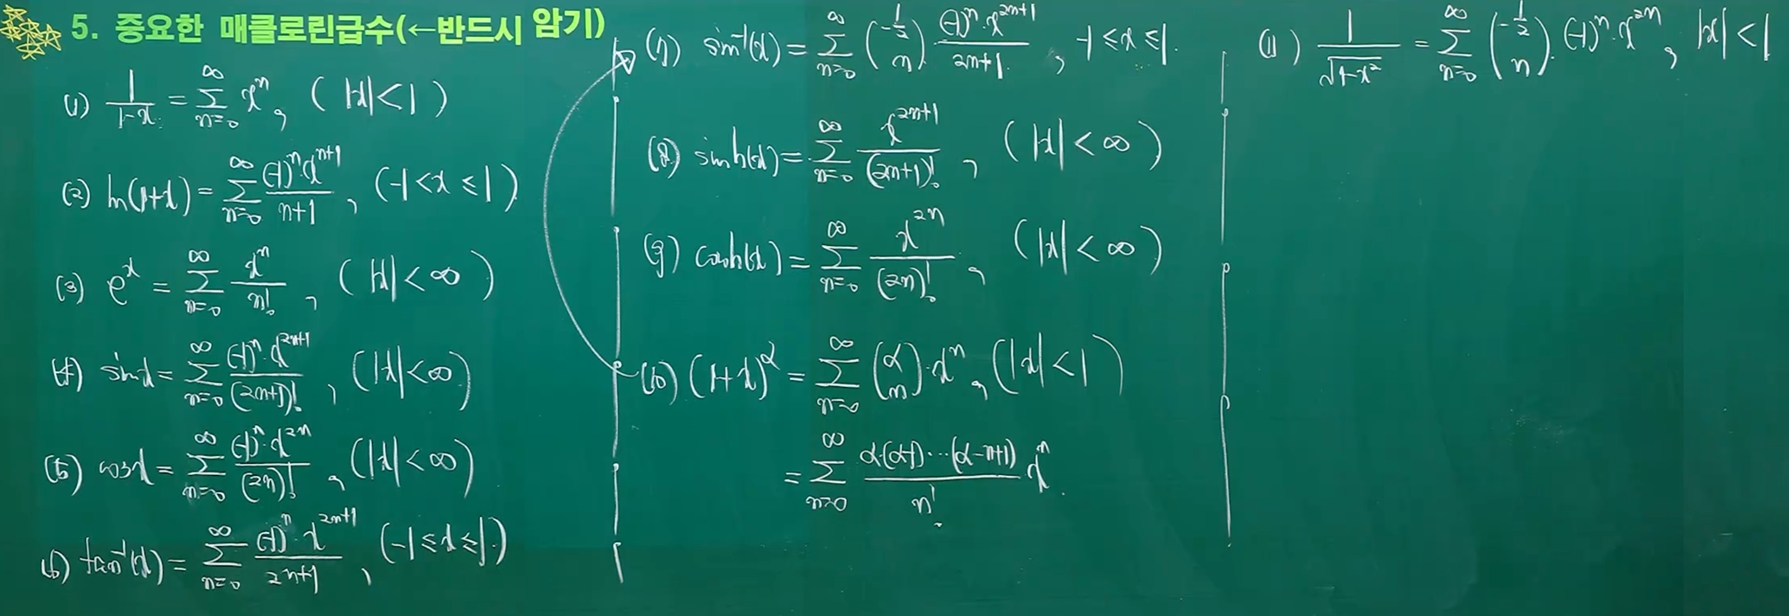 5. 중요한 매클로린급수(←반드시 암기)
(1) \frac{1}{1-x} = \sum_{n=0}^{∞} x^n, (|x|<1)
(2) ln(1+x) = \sum_{n=0}^{∞} \frac{(-1)^n·x^{n+1}}{n+1}, (-1<x≤1)
(3) e^x = \sum_{n=0}^{∞} \frac{x^n}{n!}, (|x|<∞)
(4) sinx = \sum_{n=0}^{∞} \frac{(-1)^n·x^{2n+1}}{(2n+1)!}, (|x|<∞)
(5) cosx = \sum_{n=0}^{∞} \frac{(-1)^n·x^{2n}}{(2n)!}, (|x|<∞)
(6) tan^{-1}(x) = \sum_{n=0}^{∞} \frac{(-1)^n·x^{2n+1}}{2n+1}, (-1≤x≤1)
(7) sin^{-1}(x) = \sum_{n=0}^{∞} \binom{-\frac{1}{2}}{n} \frac{(-1)^n·x^{2n+1}}{2n+1}, -1≤x≤1.
(8) sinh(x) = \sum_{n=0}^{∞} \frac{x^{2n+1}}{(2n+1)!}, (|x|<∞)
(9) cosh(x) = \sum_{n=0}^{∞} \frac{x^{2n}}{(2n)!}, (|x|<∞)
(10) (1+x)^α = \sum_{n=0}^{∞} \binom{α}{n}·x^n, (|x|<1)
= \sum_{n=0}^{∞} \frac{α·(α-1)···(α-n+1)}{n!} x^n.
(11) \frac{1}{\sqrt{1-x^2}} = \sum_{n=0}^{∞} \binom{-\frac{1}{2}}{n}·(-1)^n·x^{2n}, |x|<1